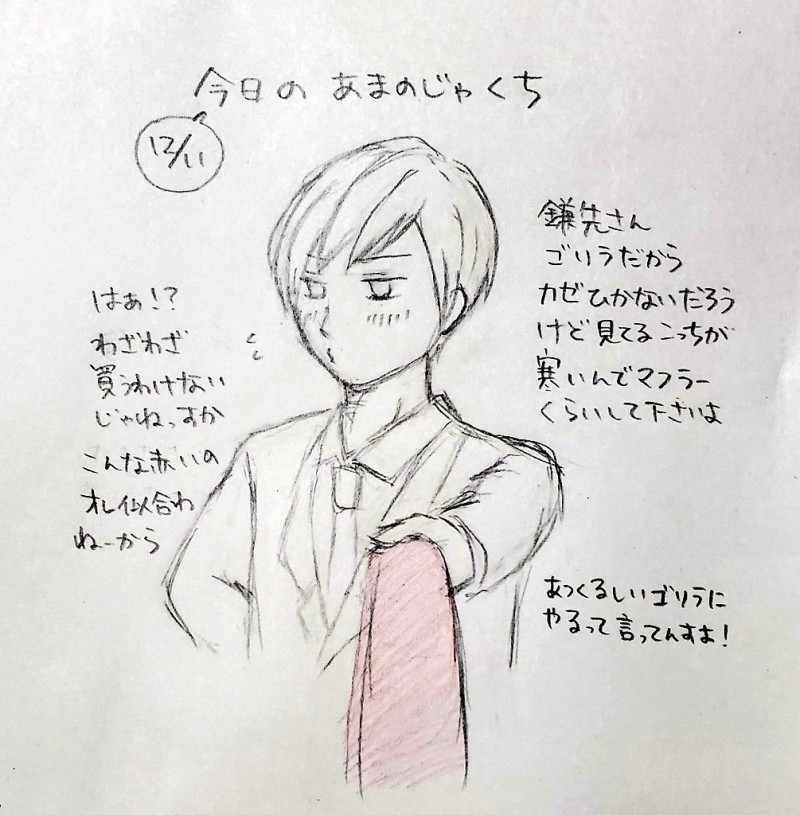 今日の あまのじゃくち
12/11
鎌先さん
ゴリラだから
カゼひかないだろう
けど見てるこっちが
寒いんでマフラー
くらいして下さいよ
はぁ!?
わざわざ
買うわけない
じゃねっすか
こんな赤いの
オレ似合わ
ねーから
あつくるしいゴリラに
やるって言ってんすよ!